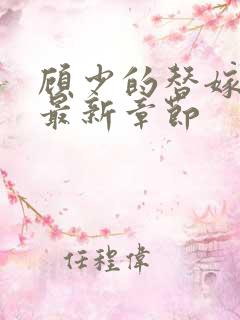 顾少的替嫁
最新章节
任程伟